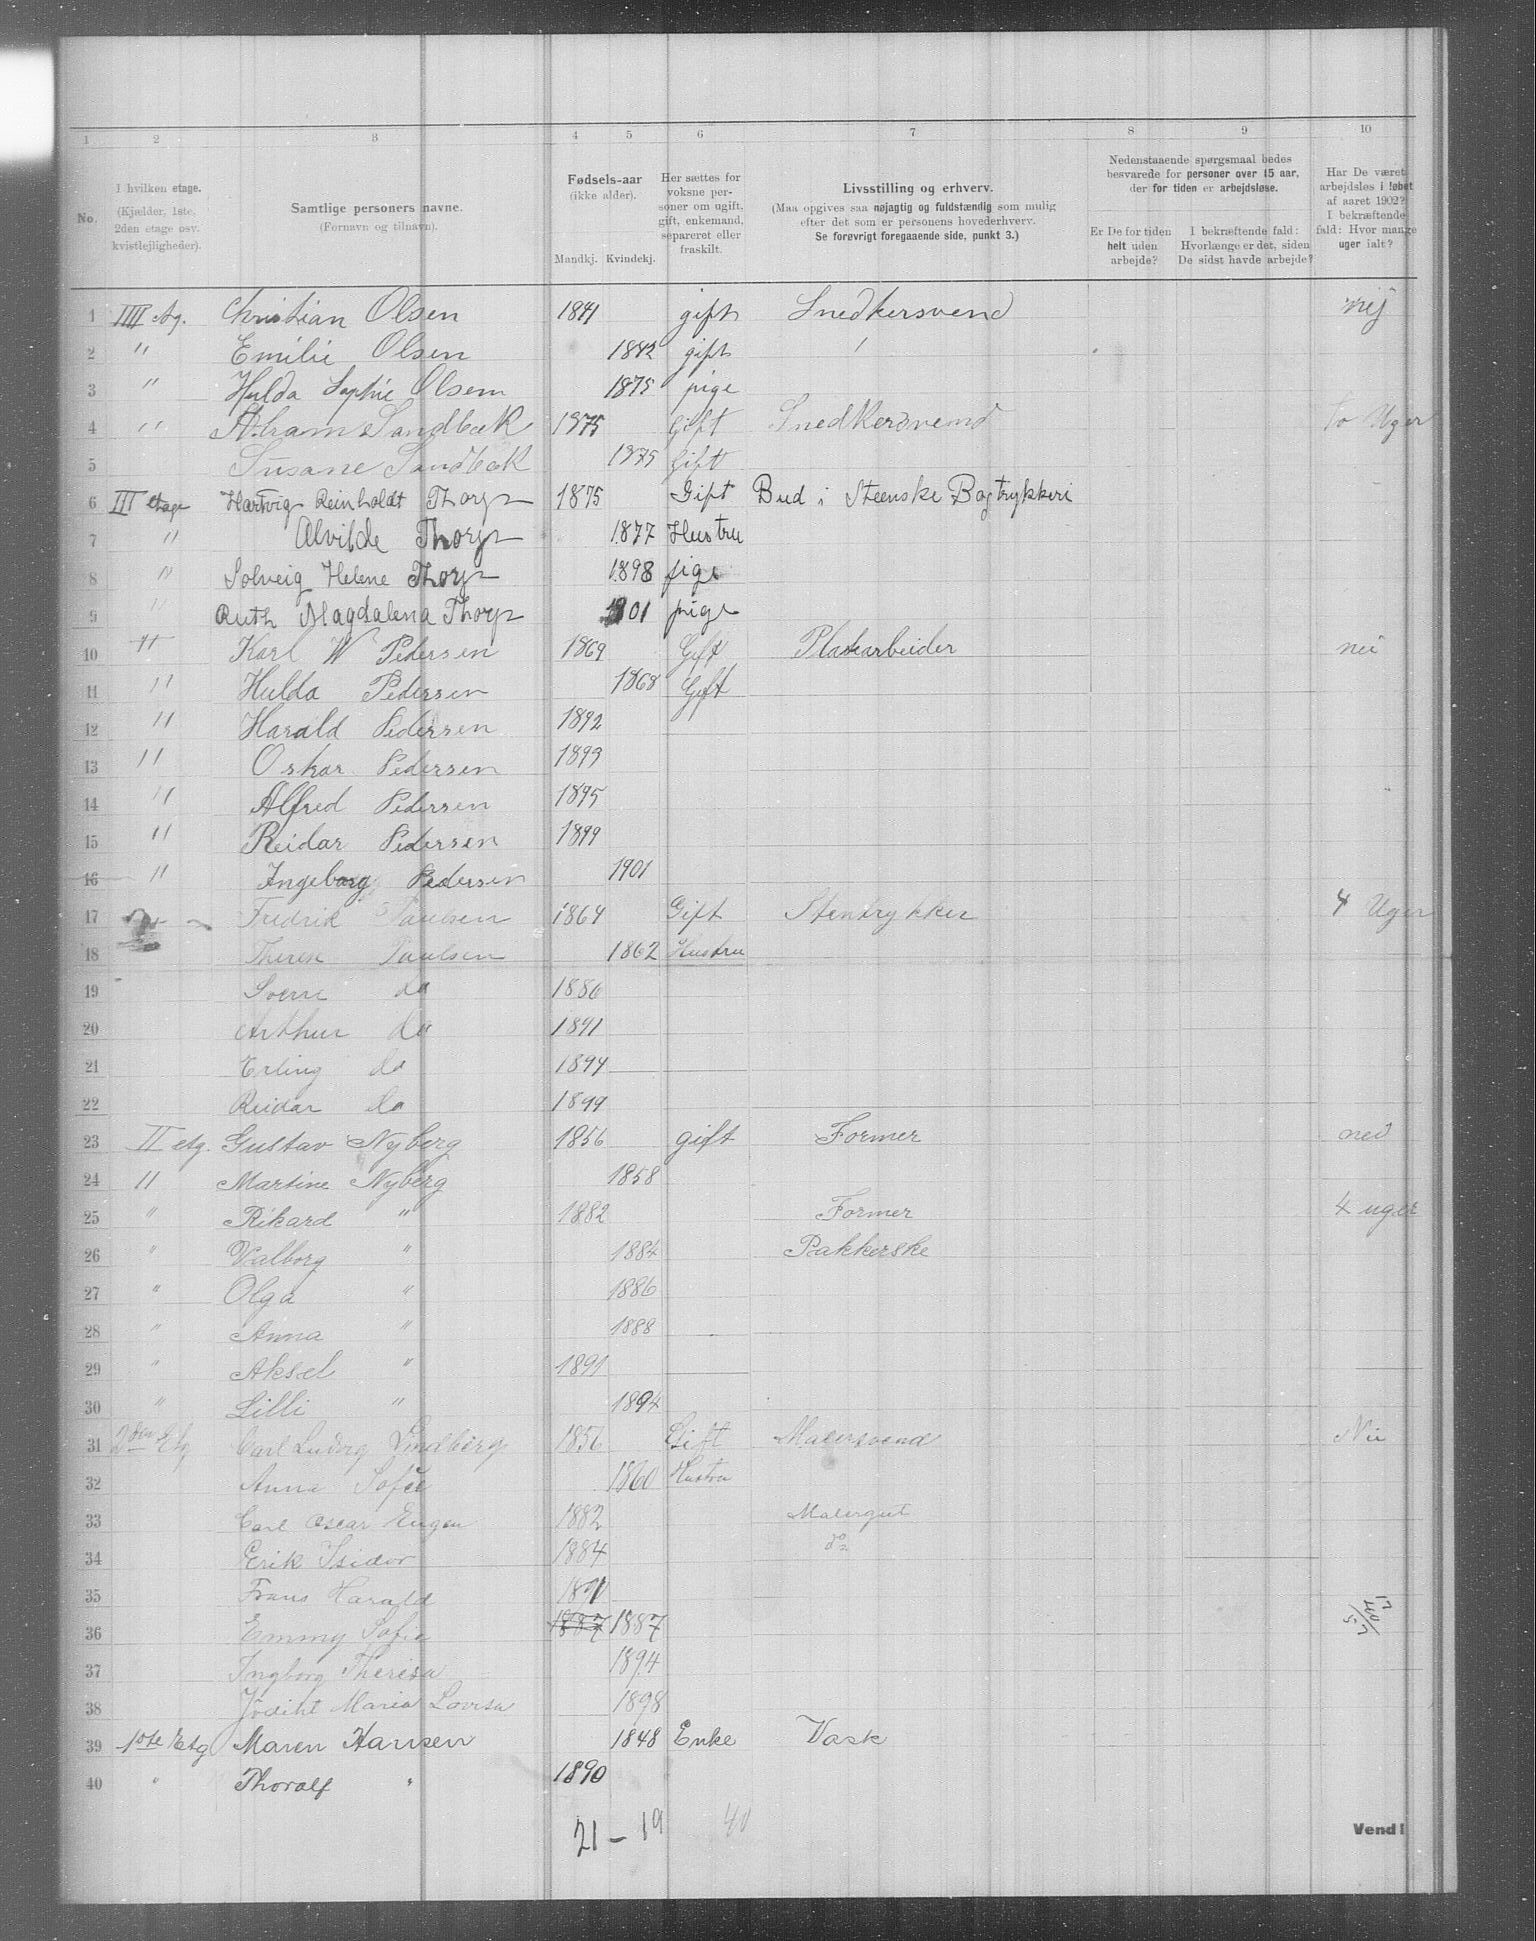 1 2 3 4 5 6 7 8 9 10
No.
I hvilken etage.
(Kjælder, 1ste,
2den etage osv.
kvistlejligheder).
Samtlige personers navne.
(Fornavn og tilnavn).
Fødsels-aar
(ikke alder).
Mandkj. Kvindekj.
Her sættes for
voksne per-
soner om ugift,
gift, enkemand,
separeret eller
fraskilt.
Livsstilling og erhverv.
(Maa opgives saa nøjagtig og fuldstændig som mulig
efter det som er personens hovederhverv.
Se forøvrigt foregaaende side, punkt 3.)
Nedenstaaende spørgsmaal bedes
besvarede for personer over 15 aar,
der for tiden er arbejdsløse.
Er De for tiden
helt uden
arbejde?
I bekræftende fald:
Hvorlænge er det, siden
De sidst havde arbejde?
Har De været
arbejdsløs i løbet
af aaret 1902?
I bekræftende
fald: Hvor mange
uger ialt?
1 IIII etg. Christian Olsen 1841 gift Snedkersvend nej
2 " Emilie Olsen 1842 gift
3 " Hulda Sophie Olsen 1875 pige
4 " Abram Sandbæk 1875 Gift Snedkersvend to Uger
5 Susane Sandbæk 1875 Gift
6 III etage Hartvig Reinholdt Thorp 1875 Gift Bud i Steenske Bogtrykkeri
7 " Alvilde Thorp 1877 Hustru
8 " Solveig Helene Thorp 1898 pige
9 " Ruth Magdalena Thorp 1901 pige
10 " Karl W Pedersen 1869 Gift Pladsarbeider nei
11 " Hulda Pedersen 1868 Gift
12 " Harald Pedersen 1892
13 " Oskar Pedersen 1893
14 " Alfred Pedersen 1895
15 " Reidar Pedersen 1899
16 " Ingeborg Pedersen 1901
17 Fredrik Paulsen 1864 Gift Stentrykker 4 Uger
18 Therese Paulsen 1862 Hustru
19 Sverre do 1886
20 Arthur do 1891
21 Erling do 1894
22 Reidar do 1899
23 II etg. Gustav Nyberg 1856 gift Former nei
24 " Martine Nyberg 1858
25 " Rikard " 1882 Former 4 uger
26 " Valborg " 1884 Pakkerske
27 " Olga " 1886
28 " Anna " 1888
29 " Aksel " 1891
30 " Lilli " 1894
31 2den Etg Carl Ludvig Lindberg 1856 Gift Malersvend Nei
32 Anna Sofie 1860 Hustru
33 Carl Oscar Eugen 1882 Malergut
34 Erik Isidor 1884 do
35 Frans Harald 1891
36 Emmy Sofie 1887 1887
37 Ingborg Theresa 1894
38 Maria Lovisa 1898
39 1ste Etg Maren Hansen 1848 Enke Vask
40 " Thoralf " 1890
21 – 19 40
Vend!